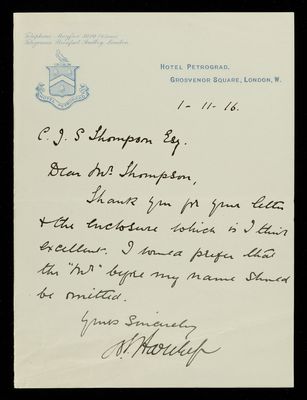 Telephone Mayfair
Telegrams Breakfast Audley London.
HOTEL PETROGRAD
HOTEL PETROGRAD,
GROSVENOR SQUARE, LONDON, W.
1-11-16.
C. J. S Thompson Esq.
Dear Mr. Thompson,
Thank you for your letter
& the enclosure which is I think
excellent. I would prefer that
the "Mr." before my name should
be omitted.
Yours Sincerely